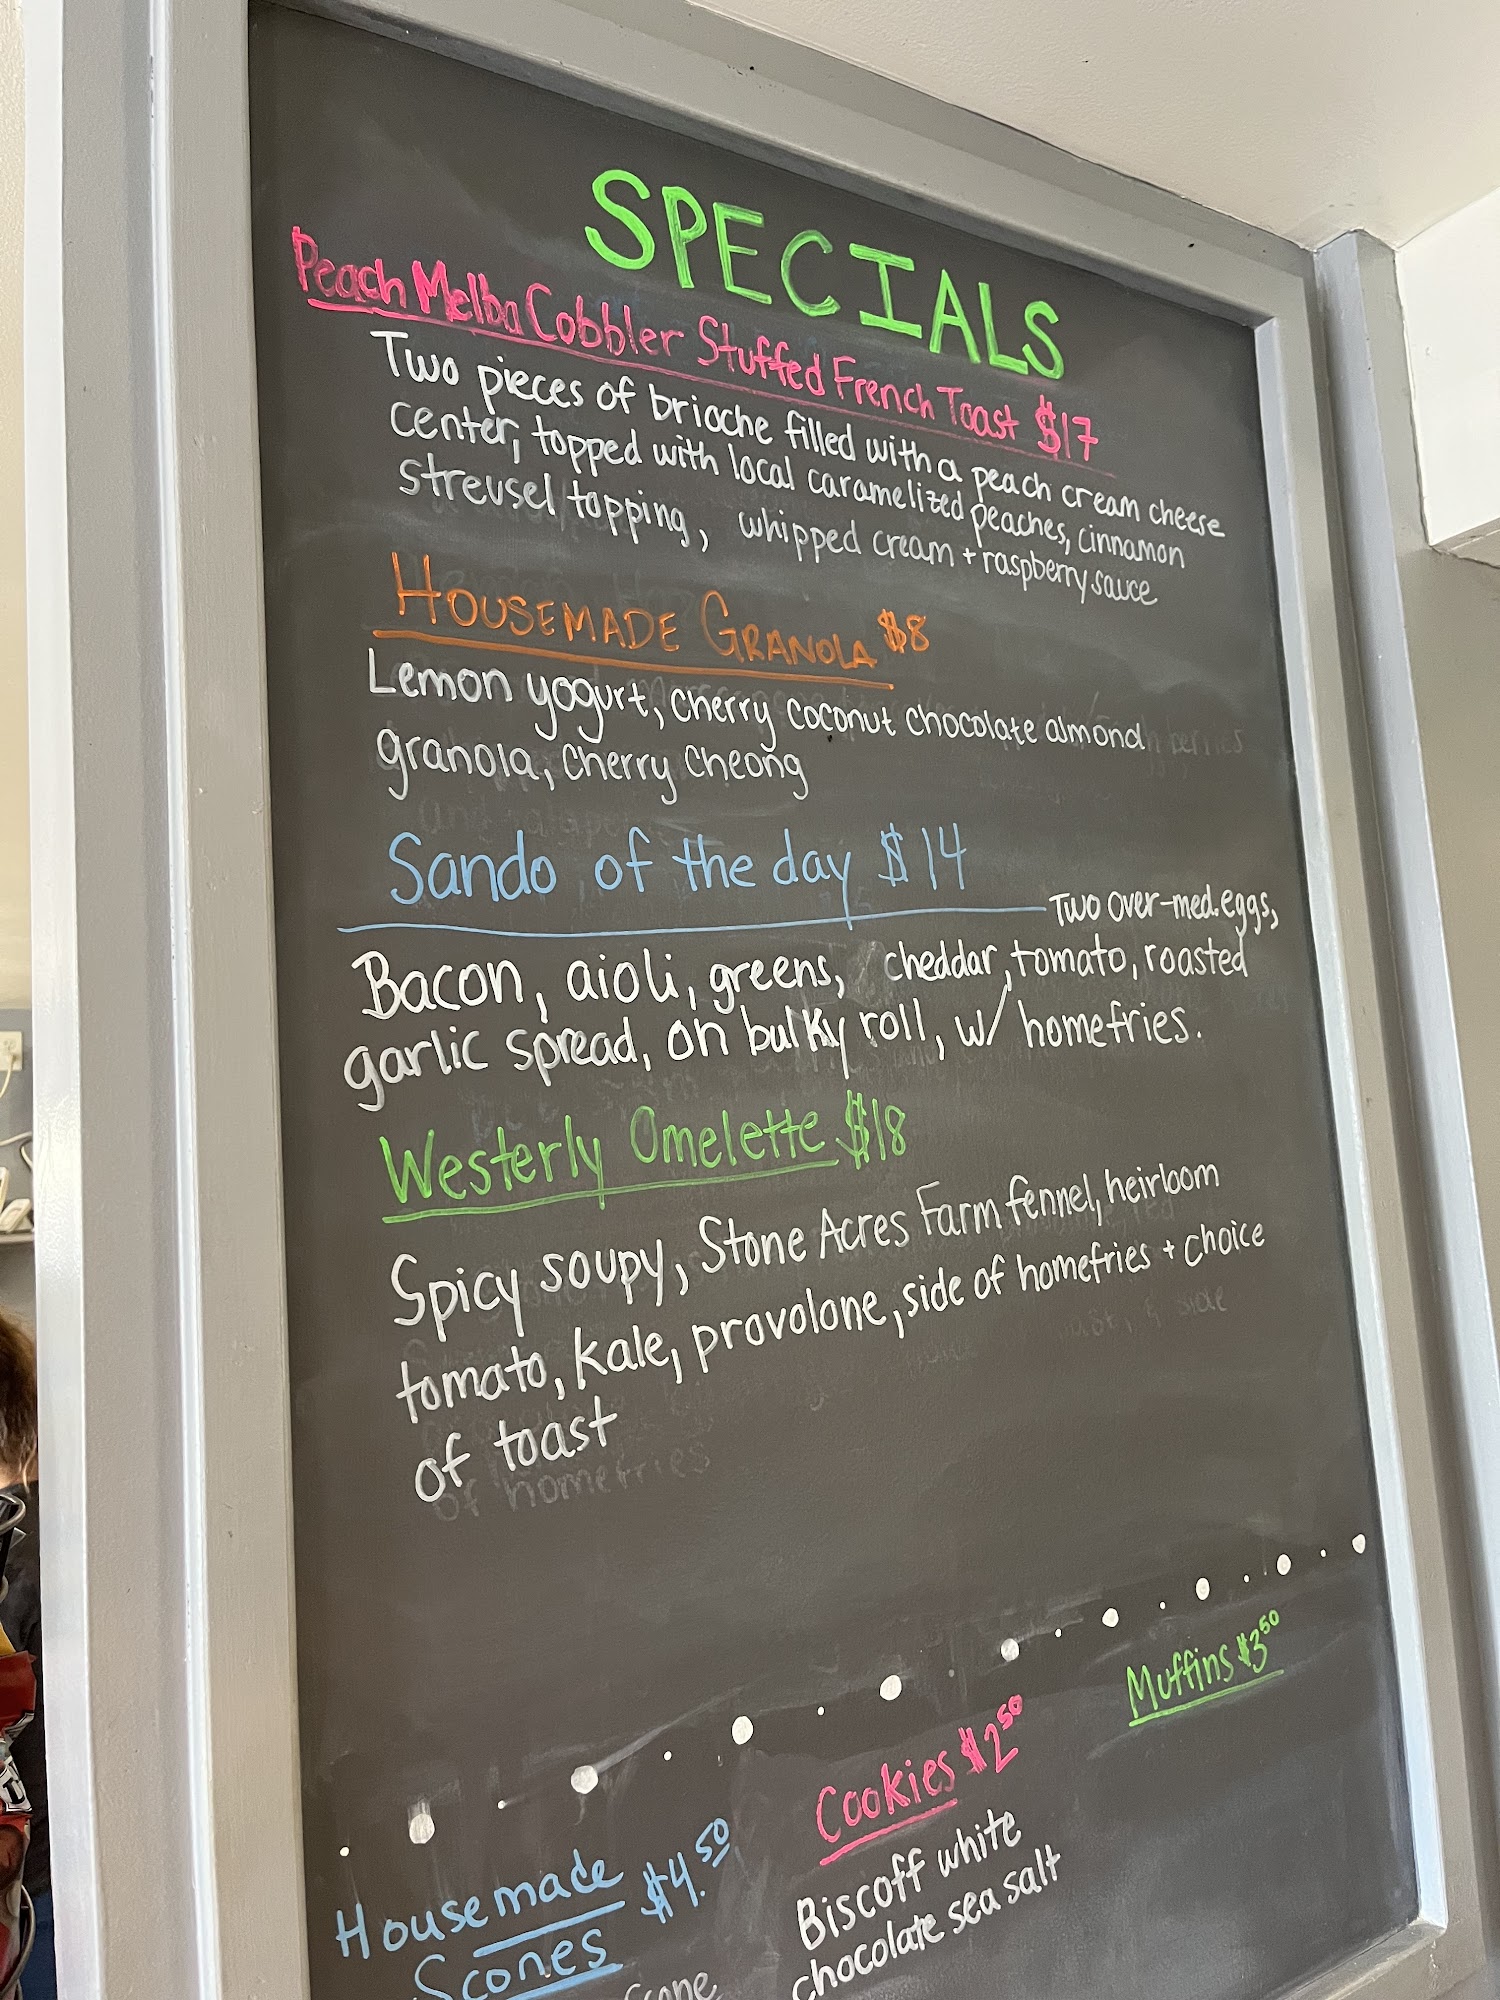 SPECIALS
Peach Melba Cobbler Stuffed French Toast $17
Two pieces of brioche filled with a peach cream cheese
center, topped with local caramelized peaches, cinnamon
streusel topping, whipped cream + raspberry sauce
HOUSEMADE GRANOLA $8
Lemon yogurt, cherry coconut chocolate almond
granola, cherry cheong
Sando of the day $14
Two over-med. eggs,
Bacon, aioli, greens, cheddar, tomato, roasted
garlic spread, on bulky roll, w/ homefries.
Westerly Omelette $18
Spicy soupy, Stone Acres Farm fennel, heirloom
tomato, kale, provolone, side of homefries + choice
of toast
of homefries
Muffins $3.50
Cookies $2.50
Biscoff white
chocolate sea salt
Housemade $4.50
Scones